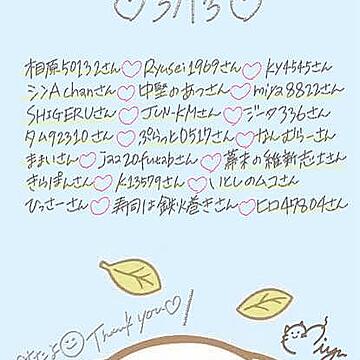 ♡3/13♡
相原50132さん♡Ryusei1969さん♡KY4545さん
シンAchanさん♡中堅のあつさん♡miya8822さん
SHIGERUさん♡JUN-KMさん♡ジータ336さん
タム92310さん♡ぷらっと0517さん♡なんむらーさん
ままいさん♡jazz20fukabさん♡幕末の維新志士さん
きらぽんさん♡K13579さん♡いとしのムコさん
ひっさーさん♡寿司は鉄火巻きさん♡ヒロ47804さん
Thank you♡